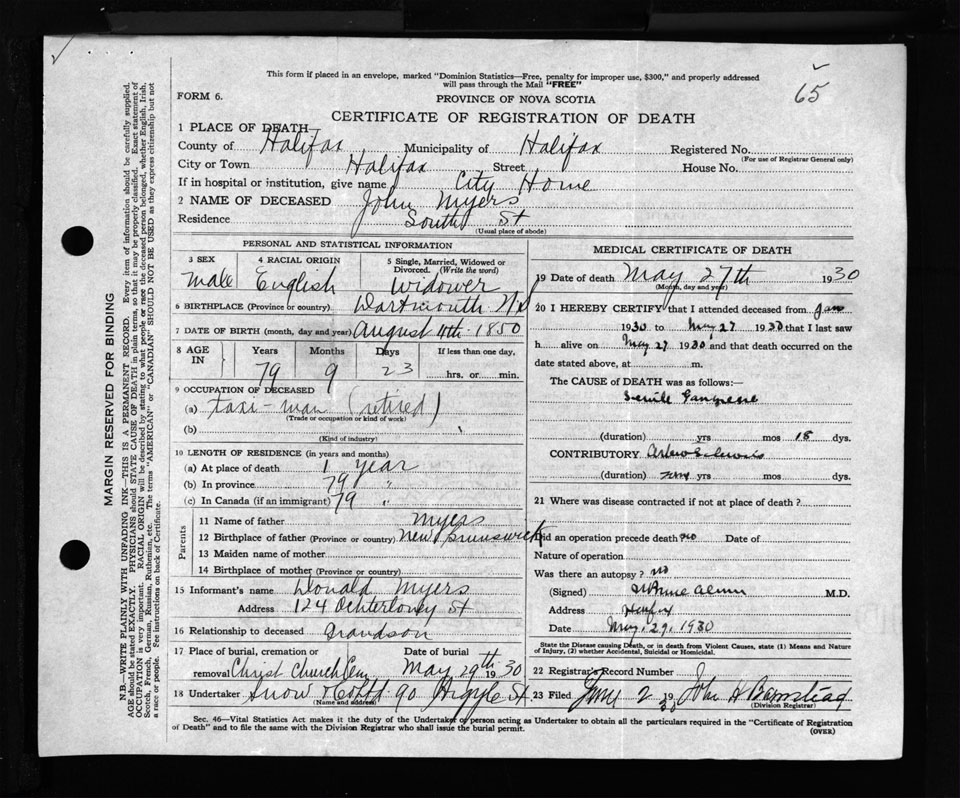 This form if placed in an envelope, marked "Dominion Statistics—Free, penalty for improper use, $300," and properly addressed
will pass through the Mail "FREE"
65
FORM 6.
PROVINCE OF NOVA SCOTIA
CERTIFICATE OF REGISTRATION OF DEATH
1 PLACE OF DEATH
County of Halifax Municipality of Halifax Registered No.
(For use of Registrar General only)
City or Town Halifax Street House No.
If in hospital or institution, give name City Home
2 NAME OF DECEASED John Myers
Residence South St
(Usual place of abode)
PERSONAL AND STATISTICAL INFORMATION
3 SEX 4 RACIAL ORIGIN 5 Single, Married, Widowed or
Divorced. (Write the word)
Male English Widower
6 BIRTHPLACE (Province or country) Dartmouth NS
7 DATE OF BIRTH (month, day and year) August 4th 1850
8 AGE IN Years Months Days If less than one day,
79 9 23 hrs. or min.
9 OCCUPATION OF DECEASED
(a) taxi man (retired)
(Trade or occupation or kind of work)
(b)
(Kind of industry)
10 LENGTH OF RESIDENCE (in years and months)
(a) At place of death 1 year
(b) In province 79 "
(c) In Canada (if an immigrant) 79 "
Parents
11 Name of father Myers
12 Birthplace of father (Province or country) New Brunswick
13 Maiden name of mother
14 Birthplace of mother (Province or country)
15 Informant's name Donald Myers
Address 124 Ochterloney St
16 Relationship to deceased Grandson
17 Place of burial, cremation or Date of burial
removal Christ Church Cem May 29th 1930
18 Undertaker Snow & Co Ltd 90 Argyle St
(Name and address)
MEDICAL CERTIFICATE OF DEATH
19 Date of death May 27th 1930
(Month, day and year)
20 I HEREBY CERTIFY that I attended deceased from Jan
1930 to May 27 1930 that I last saw
h alive on May 27 1930 and that death occurred on the
date stated above, at m.
The CAUSE of DEATH was as follows:
Senile Gangrene
(duration) yrs mos 15 dys.
CONTRIBUTORY Arterio Sclerosis
(duration) yrs mos dys.
21 Where was disease contracted if not at place of death?
Did an operation precede death no Date of
Nature of operation
Was there an autopsy? no
(Signed) M.D.
Address Halifax
Date May. 29. 1930
State the Disease causing Death, or in death from Violent Causes, state (1) Means and Nature
of Injury, (2) whether Accidental, Suicidal or Homicidal.
22 Registrar's Record Number
23 Filed June 2 30 John H Barnstead
(Division Registrar)
Sec. 46—Vital Statistics Act makes it the duty of the Undertaker or person acting as Undertaker to obtain all the particulars required in the "Certificate of Registration
of Death" and to file the same with the Division Registrar who shall issue the burial permit.
(OVER)
MARGIN RESERVED FOR BINDING
N.B.—WRITE PLAINLY WITH UNFADING INK—THIS IS A PERMANENT RECORD. Every item of information should be carefully supplied.
AGE should be stated EXACTLY. PHYSICIANS should STATE CAUSE OF DEATH in plain terms, so that it may be properly classified. Exact statement of
OCCUPATION is very important. RACIAL ORIGIN will be described by stating to what people or race the deceased person belonged, whether English, Irish,
Scotch, French, German, Russian, Ruthenian, etc. The terms "AMERICAN" or "CANADIAN" SHOULD NOT BE USED as they express citizenship but not
a race or people. See instructions on back of Certificate.